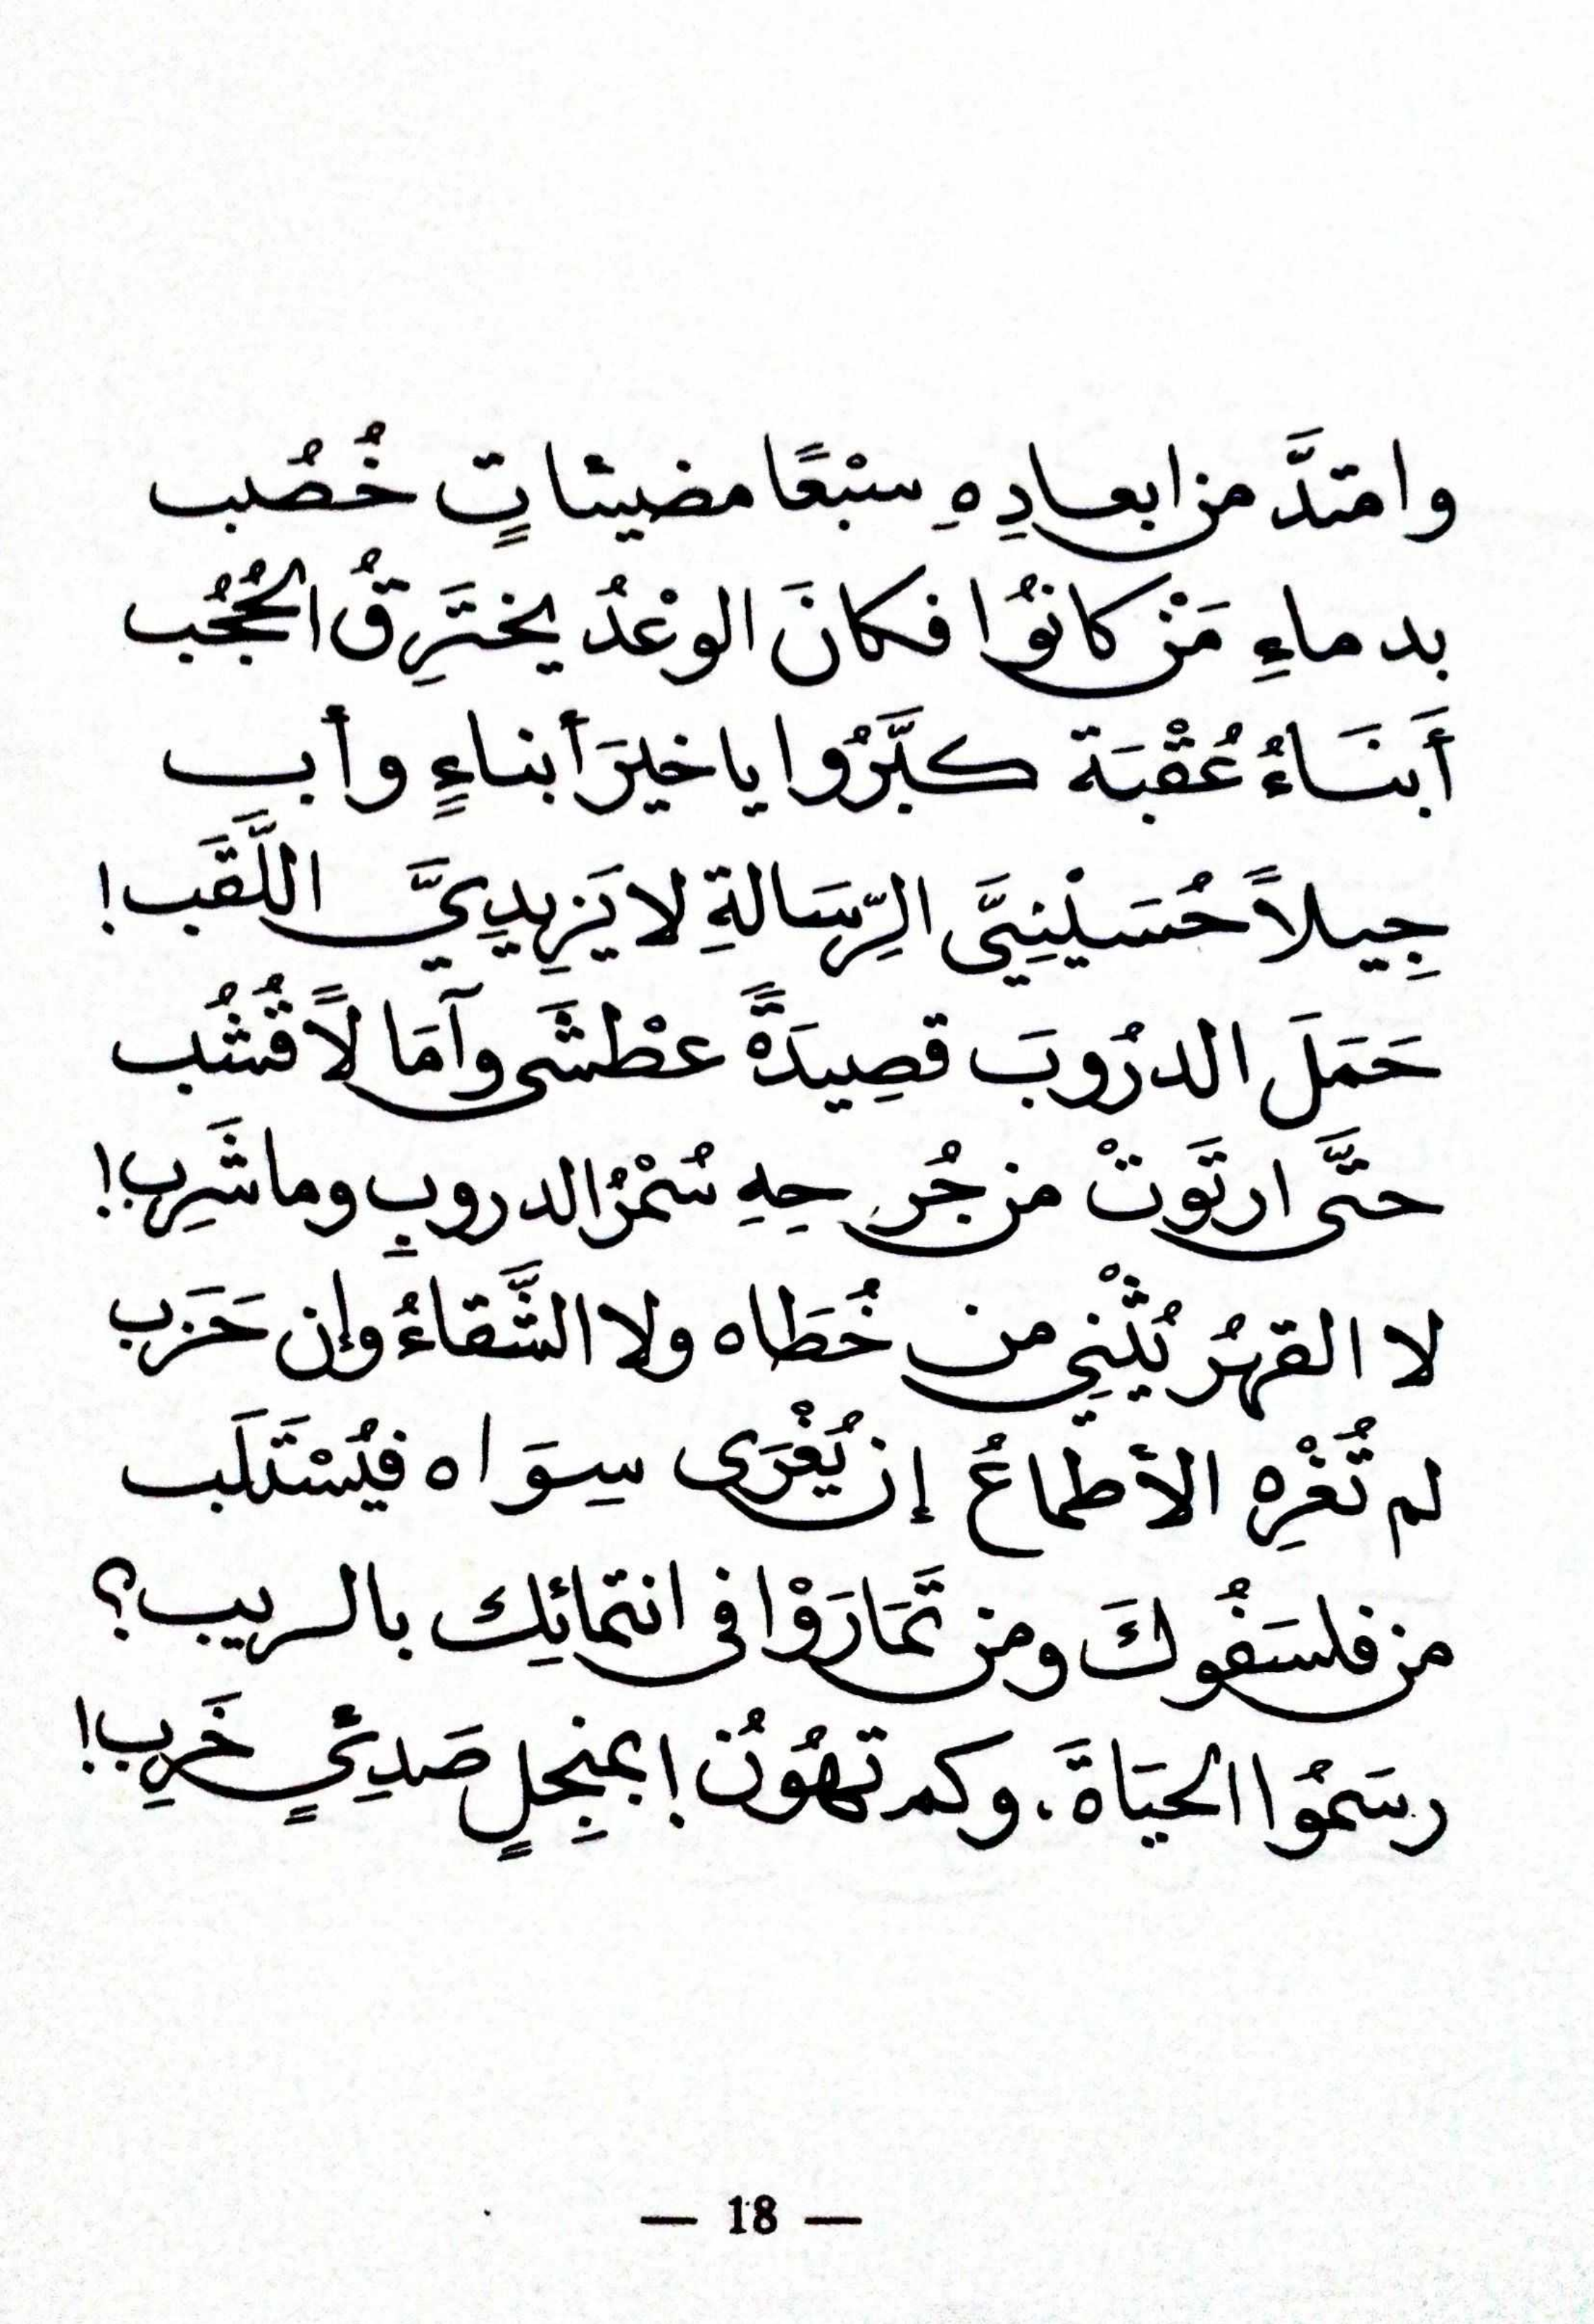 وامتدَّ من ابعادِهِ سبْعًا مضيئاتٍ خُصُب
بدماءِ مَنْ كانوُا فكانَ الوعْدُ يخترِقُ الحُجُب
أَبنَاءُ عُقْبَة كبَّرُوا يا خيرَ أبناءٍ وأب
جِيلاً حُسَيْنِيَّ الرِّسَالةِ لا يَزِيدِيَّ اللَّقَب!
حَمَلَ الدرُوبَ قصِيدَةً عطْشَى وآمَالًا قُشُب
حتَّى ارتَوَتْ من جُرحِهِ سُمْرُ الدروبِ وما شَرِب!
لا القهرُ يُثْنِي من خُطَاه ولا الشَّقاءُ وإن حَزَب
لم تُغْرِه الأطماعُ إن يُغْرَى سِوَاه فيُسْتَلَب
من فلسَفُوكَ ومن تَمَارَوْا في انتمائِك بالريب؟
رسَموُا الحيَاةَ. وكم تهوُنُ! بمنجِلٍ صَدِئٍ خَرِب!
— 18 —